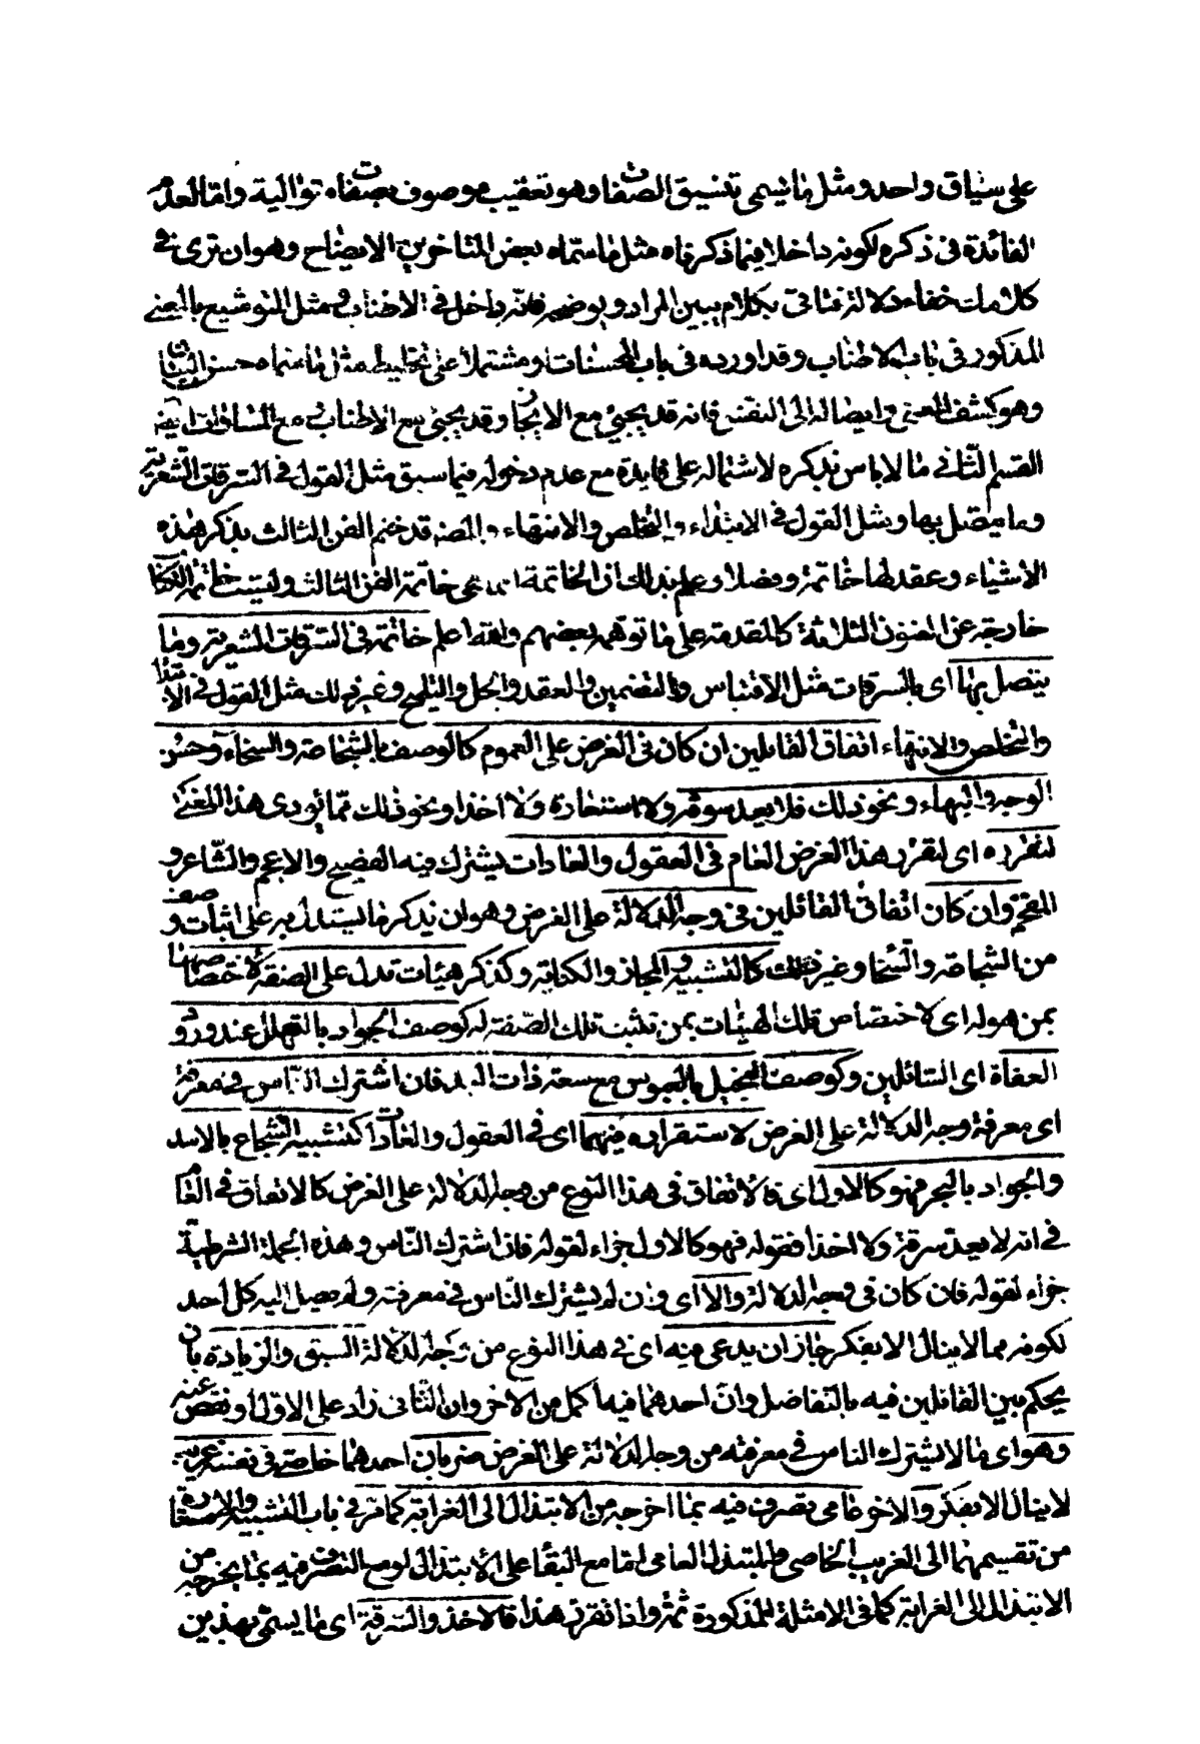 على سياق واحد ومثل ما يسمى تنسيق الصفات وهو تعقيب موصوف بصفات متوالية واما العدم
الفائدة فى ذكره لكونه داخلا فيما ذكرناه مثل ما سماه بعض المتاخرين الايضاح وهو ان ترى فى
كلامك خفاء دلالة فتاتى بكلام يبين المراد ويوضحه فانه داخل فى الاطناب ومثل التوشيع بالمعنى
المذكور فى باب الاطناب وقد اورده فى باب المحسنات او مشتملا على تخليط مثل ما سماه حسن البيان
وهو كشف المعنى وايصاله الى النفس فانه قد يجئ مع الايجاز وقد يجئ مع الاطناب ومع المساواة ايضا
القسم الثانى ما لا باس بذكره لاشتماله على فايدة مع عدم دخوله فيما سبق مثل القول فى السرقات الشعرية
وما يتصل بها ومثل القول فى الابتداء والتخلص والانتهاء والمص قد ختم الفن الثالث بذكر هذه
الاشياء وعقد لها خاتمة وفصلا وعلم بذلك ان الخاتمة انما هى خاتمة الفن الثالث وليست خاتمة الكتاب
خارجة عن الفنون الثلاثة كالمقدمة على ما توهمه بعضهم والله اعلم خاتمة فى السرقات الشعرية وما
يتصل بها اى بالسرقات مثل الاقتباس والتضمين والعقد والحل والتلميح وغير ذلك مثل القول فى الابتداء
والتخلص والانتهاء اتفاق القائلين ان كان فى الغرض على العموم كالوصف بالشجاعة والسخاء وحسن
الوجه والبهاء ونحو ذلك فلا يعد سرقة ولا استعارة ولا اخذا ونحو ذلك مما يودى هذا المعنى
لتقرره اى لتقرر هذا الغرض العام فى العقول والعادات يشترك فيه الفصيح والاعجم والشاعر و
المفحم وان كان اتفاق القائلين فى وجه الدلالة على الغرض وهو ان يذكر ما يستدل به على اثبات وصف
من الشجاعة والسخا وغير ذلك كالتشبيه والمجاز والكناية وكذكر هيئات تدل على الصفة لاختصاصها
بمن هى له اى لاختصاص تلك الهيئات بمن تثبت تلك الصفة له كوصف الجواد بالتهلل عند ورود
العفاة اى السائلين وكوصف البخيل بالعبوس مع سعة ذات اليد فان اشترك الناس فى معرفته
اى معرفة وجه الدلالة على الغرض لاستقراره فيهما اى فى العقول والعادات كتشبيه الشجاع بالاسد
والجواد بالبحر فهو كالاول اى فالاتفاق فى هذا النوع من وجه الدلالة على الغرض كالاتفاق فى العام
فى انه لا يعد سرقة ولا اخذا فقوله فهو كالاول جزاء لقوله فان اشترك الناس وهذه الجملة الشرطية
جزاء لقوله فان كان فى وجه الدلالة والا اى وان لم يشترك الناس فى معرفته ولم يصل اليه كل احد
لكونه مما لا ينال الا بفكر جاز ان يدعى فيه اى فى هذا النوع من وجه الدلالة السبق والزيادة بان
يحكم بين القائلين فيه بالتفاضل وان احدهما فيه اكمل من الاخر وان الثانى زاد على الاول او نقص عنه
وهو اى ما لا يشترك الناس فى معرفته من وجه الدلالة على الغرض ضربان احدهما خاصى فى نفسه غريب
لا ينال الا بفكر والاخر عامى تصرف فيه بما اخرجه من الابتذال الى الغرابة كما مر فى باب التشبيه والاستعارة
من تقسيمهما الى الغريب الخاصى والمبتذل العامى اما مع البقا على الابتذال او مع التصرف فيه بما يخرجه من
الابتذال الى الغرابة كما فى الامثلة المذكورة ثمة واذا تقرر هذا فالاخذ والسرقة اى ما يسمى بهذين